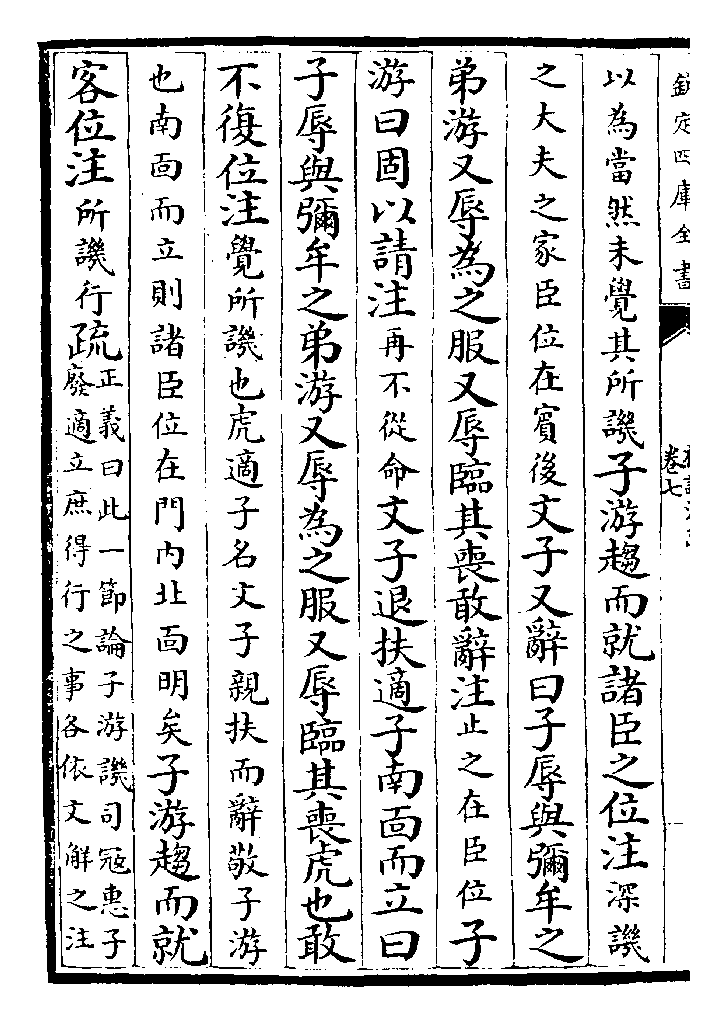 欽定四庫全書
卷七
以為當然未覺其所譏子游趨而就諸臣之位注深譏
之大夫之家臣位在賓後文子又辭曰子辱與彌牟之
弟游又辱為之服又辱臨其喪敢辭注止之在臣位子
游曰固以請注再不從命文子退扶適子南面而立曰
子辱與彌牟之弟游又辱為之服又辱臨其喪虎也敢
不復位注覺所譏也虎適子名文子親扶而辭敬子游
也南面而立則諸臣位在門内北面明矣子游趨而就
客位注所譏行疏正義曰此一節論子游譏司寇惠子
廢適立庶得行之事各依文解之注